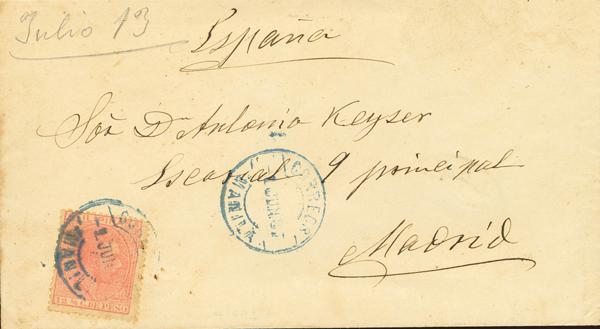 Julio 13
España
Sor D Antonio Keyser
Escorial 9 principal
Madrid
CORREOS
MANILA
JUN
MANILA
JUN